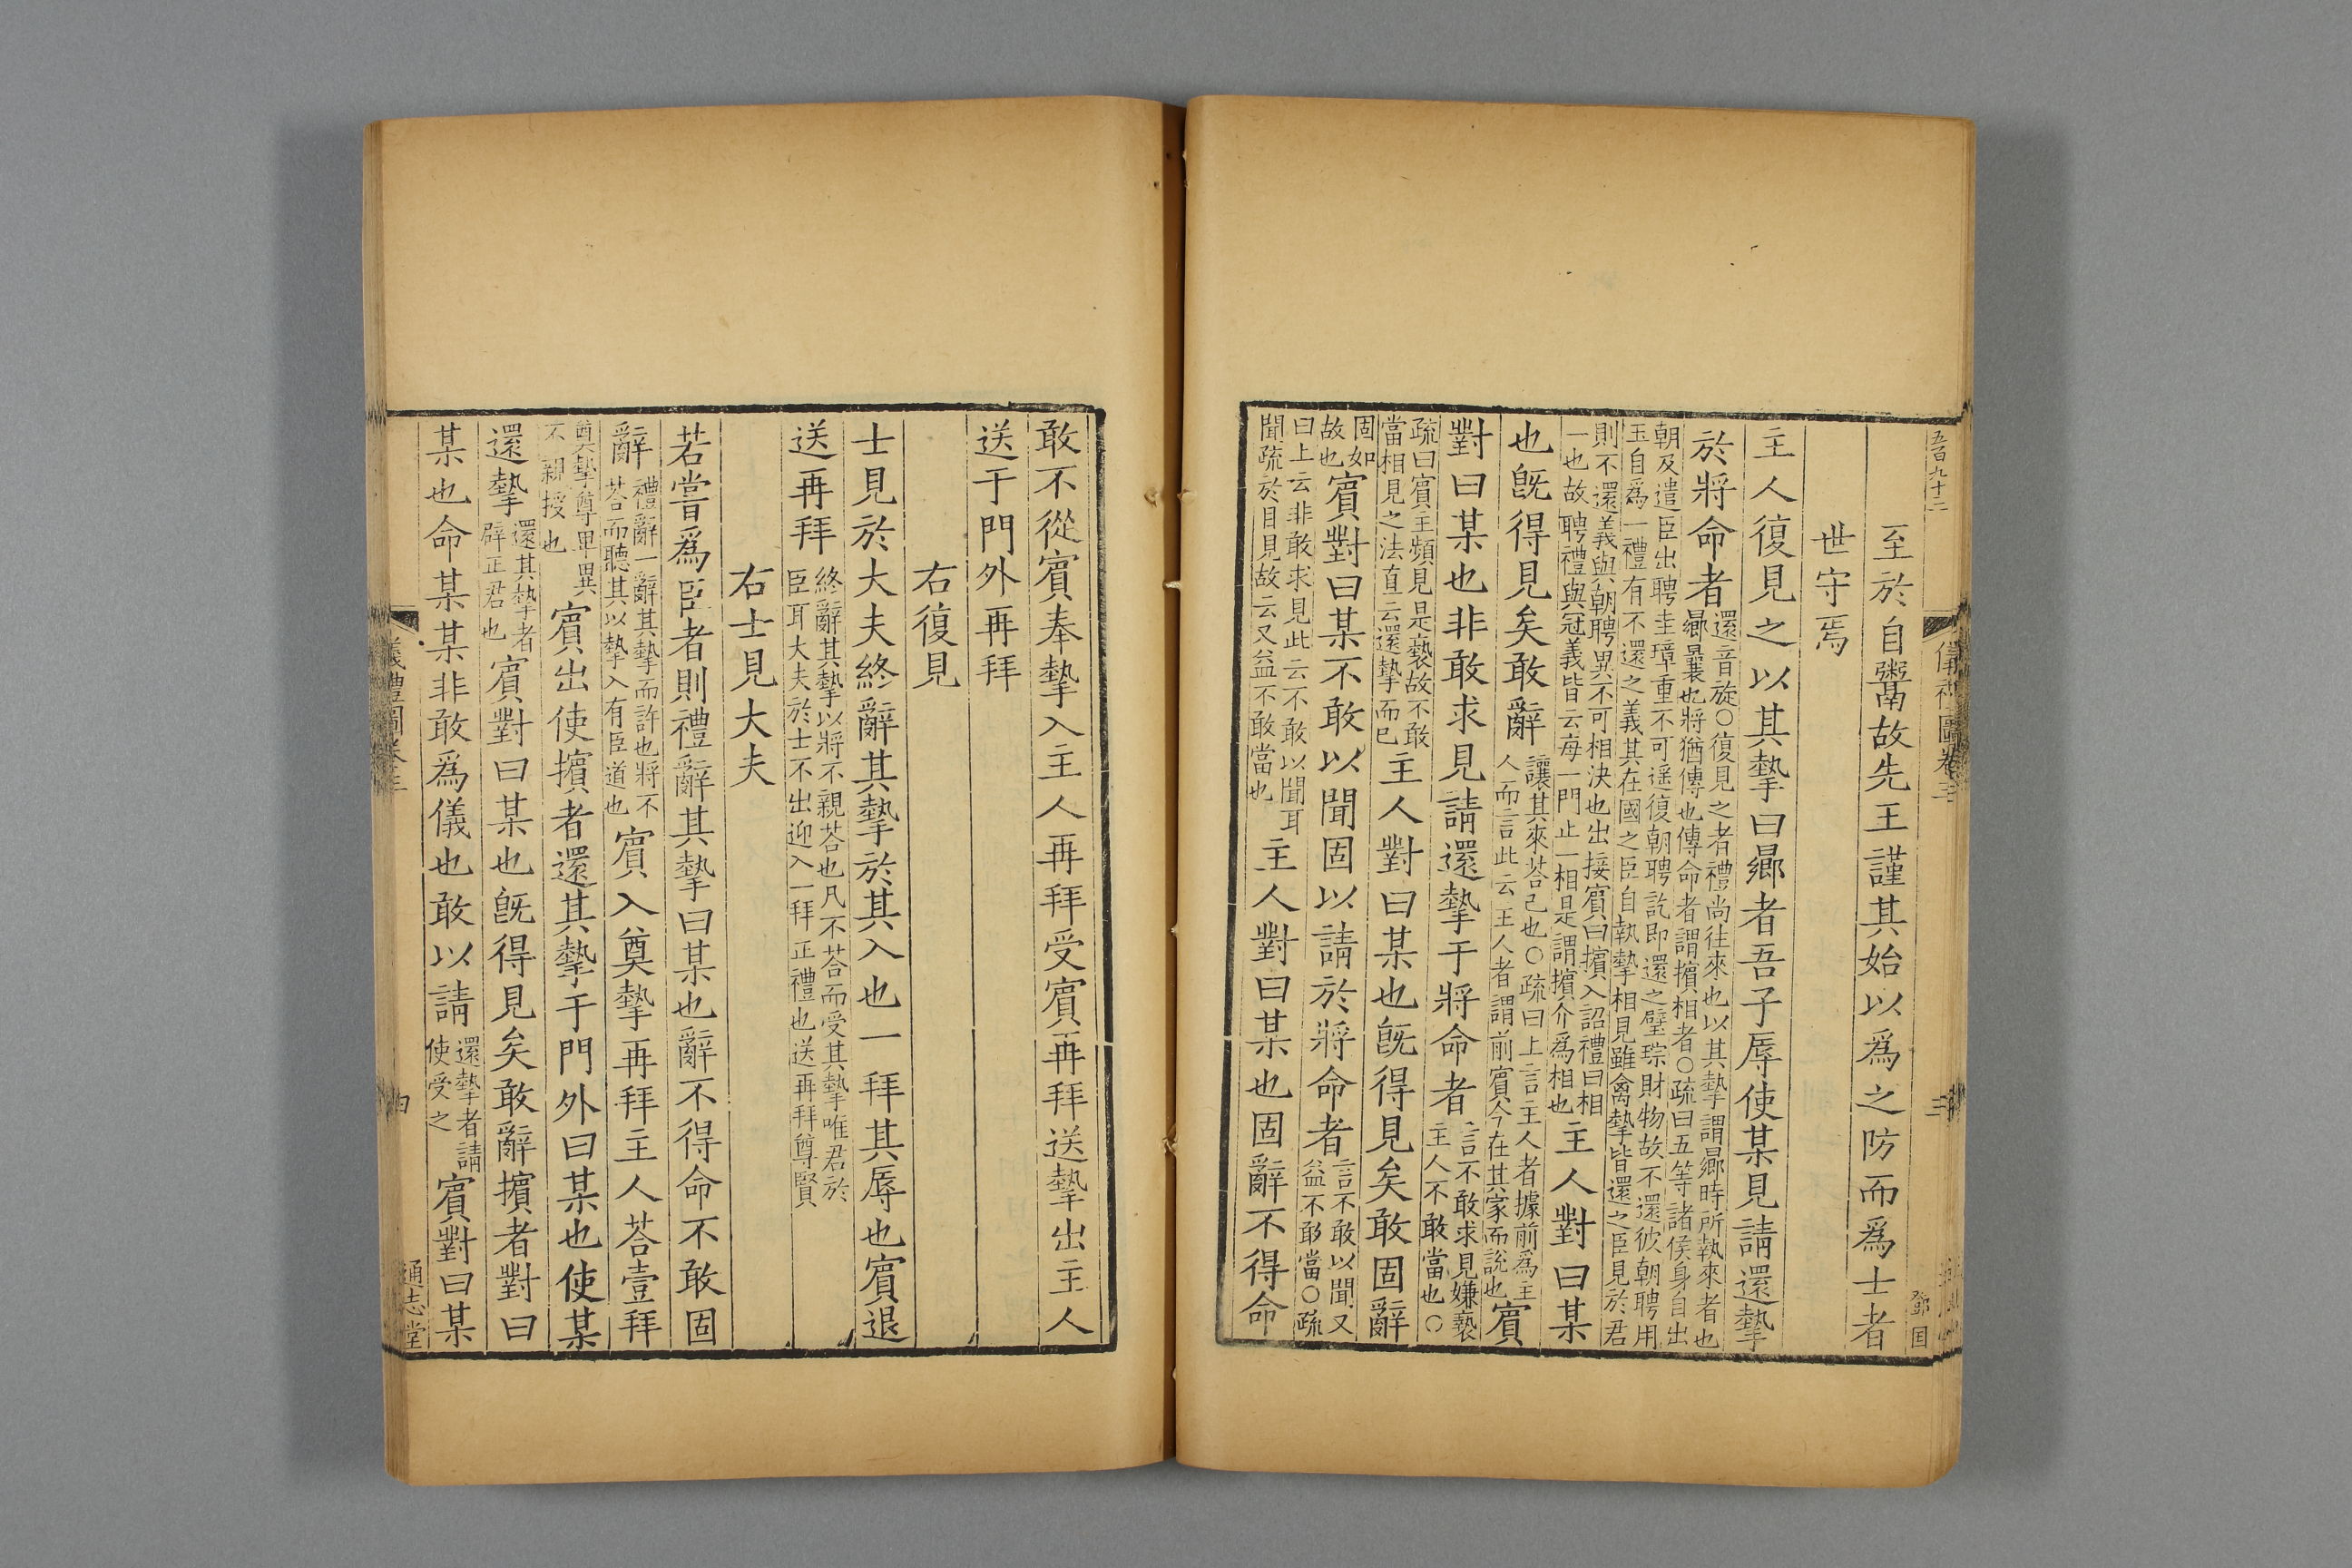 五百九十二
儀禮圖卷三
三
鄧国
至於自鬻故先王謹其始以爲之防而爲士者
世守焉
主人復見之以其摯曰曏者吾子辱使某見請還摯
於將命者
還音旋○復見之者禮尚往來也以其摯謂曏時所執來者也
曏曩也將猶傳也傳命者謂擯相者○疏曰五等諸侯身自出
朝及遣臣出聘圭璋重不可遥復朝聘訖即還之璧琮財物故不還彼朝聘用
玉自爲一禮有不還之義其在國之臣自執摯相見雖禽摯皆還之臣見於君
則不還義與朝聘異不可相決也出接賓曰擯入詔禮曰相
一也故聘禮與冠義皆云每一門止一相是謂擯介爲相也
主人對曰某
也旣得見矣敢辭
讓其來荅己也○疏曰上言主人者據前爲主
人而言此云主人者謂前賓今在其家而說也
賓
對曰某也非敢求見請還摯于將命者
言不敢求見嫌褻
主人不敢當也○
疏曰賓主頻見是褻故不敢
當相見之法直云還摯而已
主人對曰某也旣得見矣敢固辭
固如
故也
賓對曰某不敢以聞固以請於將命者
言不敢以聞又
益不敢當○疏
曰上云非敢求見此云不敢以聞耳
聞疏於目見故云又益不敢當也
主人對曰某也固辭不得命
敢不從賓奉摯入主人再拜受賓再拜送摯出主人
送于門外再拜
右復見
士見於大夫終辭其摯於其入也一拜其辱也賓退
送再拜
終辭其摯以將不親荅也凡不荅而受其摯唯君於
臣耳大夫於士不出迎入一拜正禮也送再拜尊賢
右士見大夫
若嘗爲臣者則禮辭其摯曰某也辭不得命不敢固
辭
禮辭一辭其摯而許也將不
荅而聽其以摯入有臣道也
賓入奠摯再拜主人荅壹拜
奠摯尊卑異
不親授也
賓出使擯者還其摯于門外曰某也使某
還摯
還其摯者
辟正君也
賓對曰某也旣得見矣敢辭擯者對曰
某也命某某非敢爲儀也敢以請
還摯者請
使受之
賓對曰某
儀禮圖卷三
四
通志堂